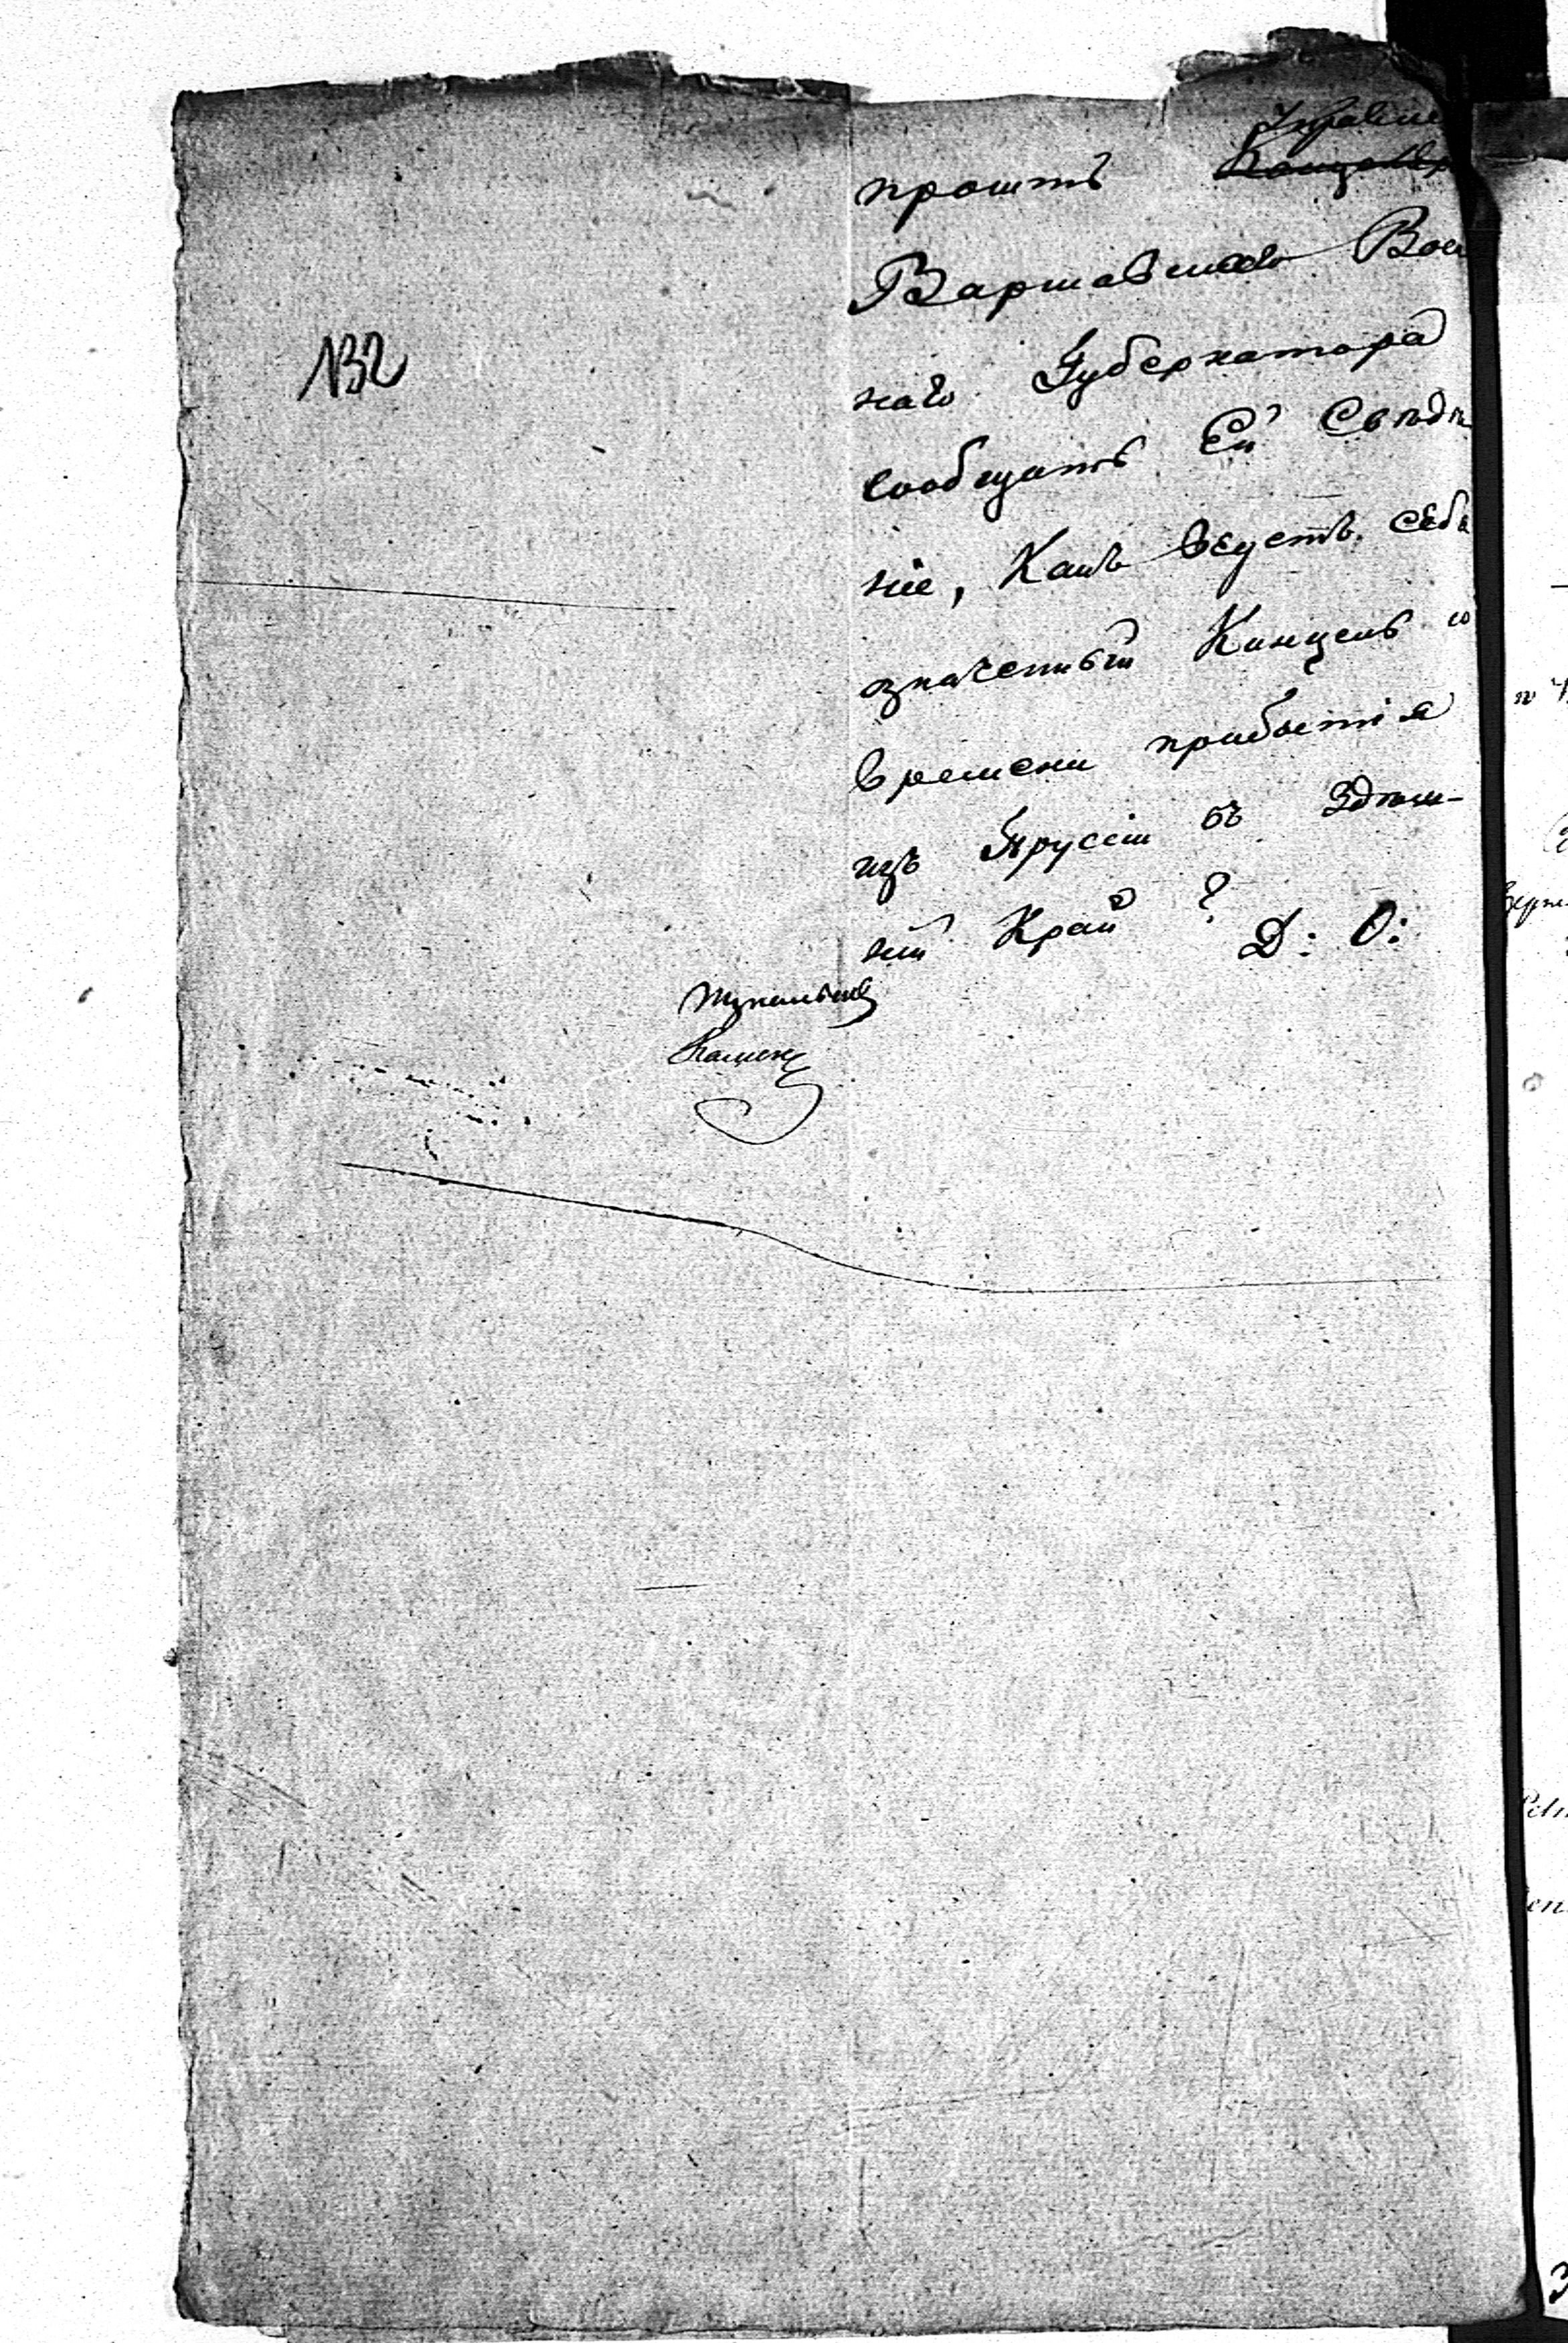 132
Управле
проситъ ~~Канцеля~~
Варшавскаго Воен
наго Губернатора
сообщить Ей Свѣдѣ
ніе, Какъ ведетъ себя
означенный Кинцель со
времени прибытія
изъ Пруссіи въ Здѣш-
ній Край?
Д: О: